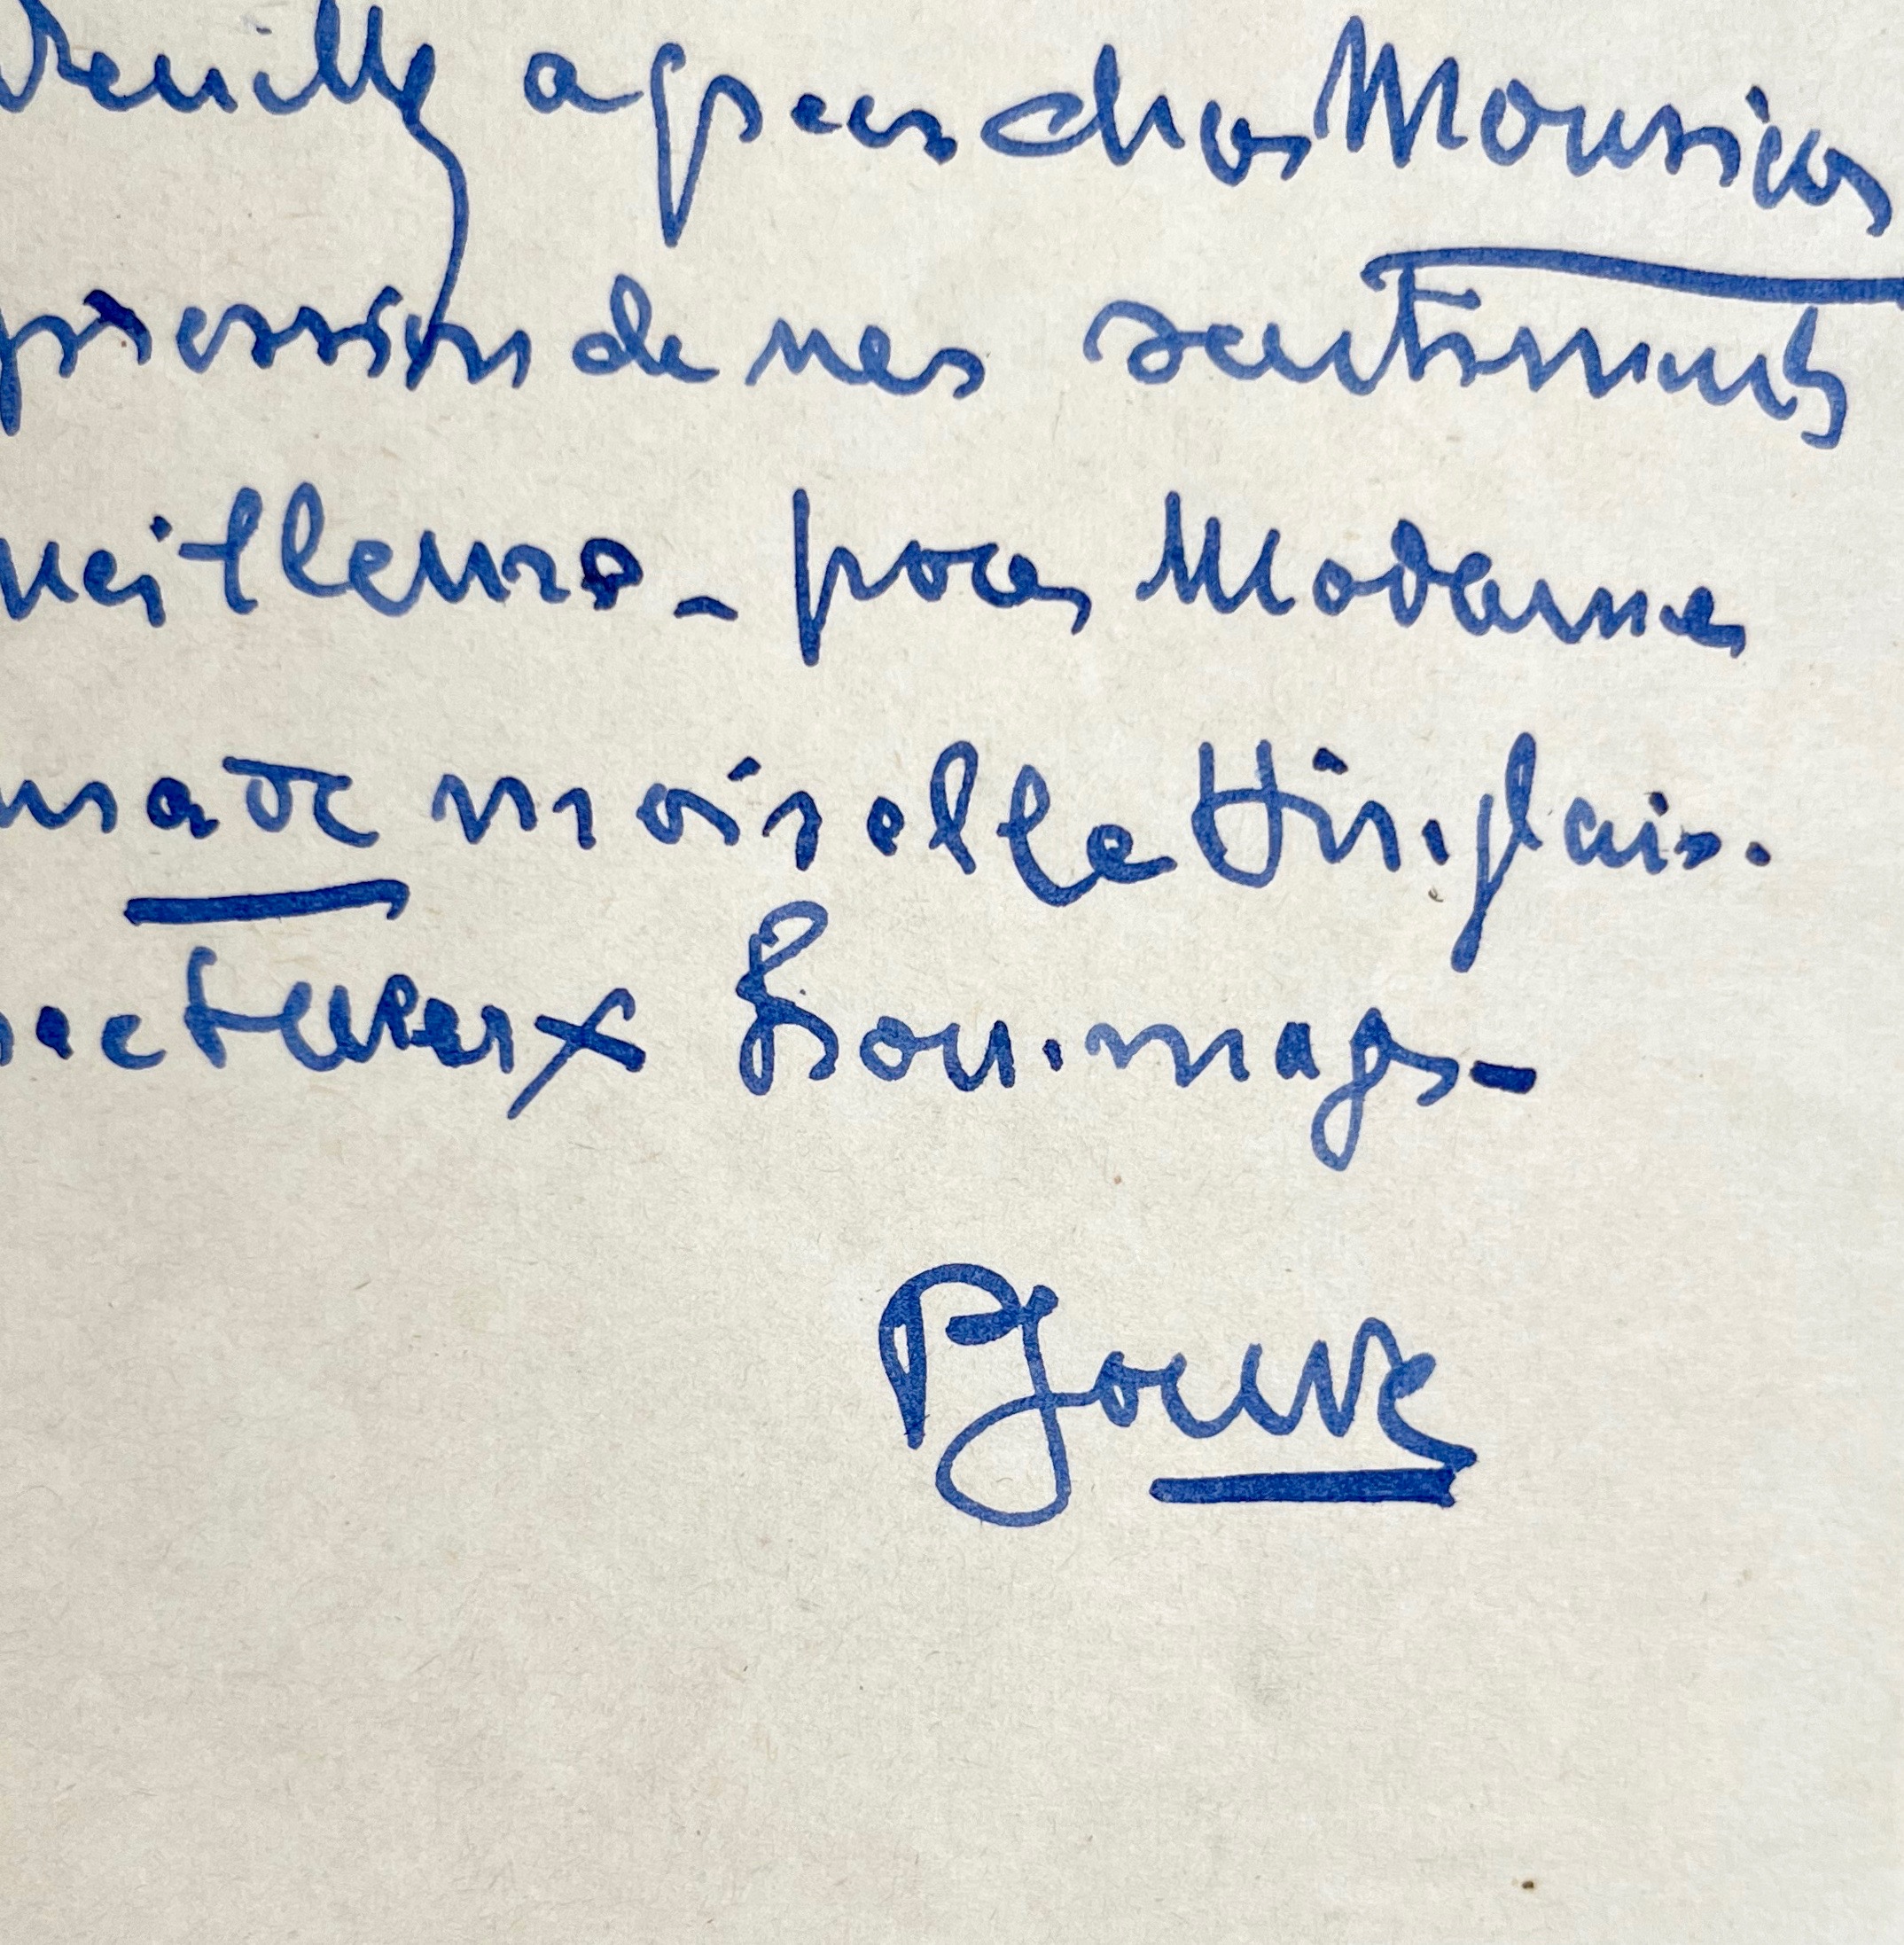 Veuillez agréer cher Monsieur
pression de mes sentiments
meilleurs - pour Madame
made moiselle Hinglais.
pectueux hommages -
PJouve